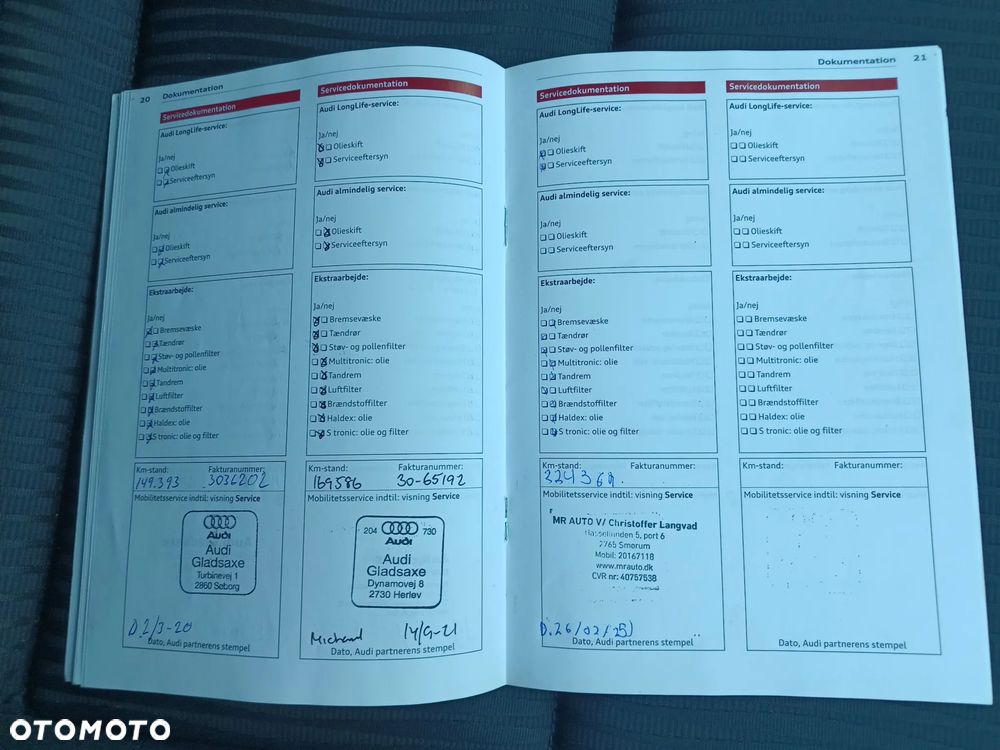 20 Dokumentation
Servicedokumentation
Audi LongLife-service:
Ja/nej
Olieskift
Serviceeftersyn
Audi almindelig service:
Ja/nej
Olieskift
Serviceeftersyn
Ekstraarbejde:
Ja/nej
Bremsevæske
Tændrør
Støv- og pollenfilter
Multitronic: olie
Tandrem
Luftfilter
Brændstoffilter
Haldex: olie
S tronic: olie og filter
Km-stand: Fakturanummer:
149.393 3036202
Mobilitetsservice indtil: visning Service
Audi
Audi
Gladsaxe
Turbinevej 1
2860 Søborg
D.2/3-20
Dato, Audi partnerens stempel
Servicedokumentation
Audi LongLife-service:
Ja/nej
Olieskift
Serviceeftersyn
Audi almindelig service:
Ja/nej
Olieskift
Serviceeftersyn
Ekstraarbejde:
Ja/nej
Bremsevæske
Tændrør
Støv- og pollenfilter
Multitronic: olie
Tandrem
Luftfilter
Brændstoffilter
Haldex: olie
S tronic: olie og filter
Km-stand: Fakturanummer:
169586 30-65192
Mobilitetsservice indtil: visning Service
204 730
Audi
Audi
Gladsaxe
Dynamovej 8
2730 Herlev
14/9-21
Dato, Audi partnerens stempel
Dokumentation 21
Servicedokumentation
Audi LongLife-service:
Ja/nej
Olieskift
Serviceeftersyn
Audi almindelig service:
Ja/nej
Olieskift
Serviceeftersyn
Ekstraarbejde:
Ja/nej
Bremsevæske
Tændrør
Støv- og pollenfilter
Multitronic: olie
Tandrem
Luftfilter
Brændstoffilter
Haldex: olie
S tronic: olie og filter
Km-stand: Fakturanummer:
Mobilitetsservice indtil: visning Service
MR AUTO V/ Christoffer Langvad
5, port 6
2765 Smørum
Mobil: 20167118
www.mrauto.dk
CVR nr: 40757538
D.26/02/25
Dato, Audi partnerens stempel
Servicedokumentation
Audi LongLife-service:
Ja/nej
Olieskift
Serviceeftersyn
Audi almindelig service:
Ja/nej
Olieskift
Serviceeftersyn
Ekstraarbejde:
Ja/nej
Bremsevæske
Tændrør
Støv- og pollenfilter
Multitronic: olie
Tandrem
Luftfilter
Brændstoffilter
Haldex: olie
S tronic: olie og filter
Km-stand: Fakturanummer:
Mobilitetsservice indtil: visning Service
Dato, Audi partnerens stempel
OTOMOTO